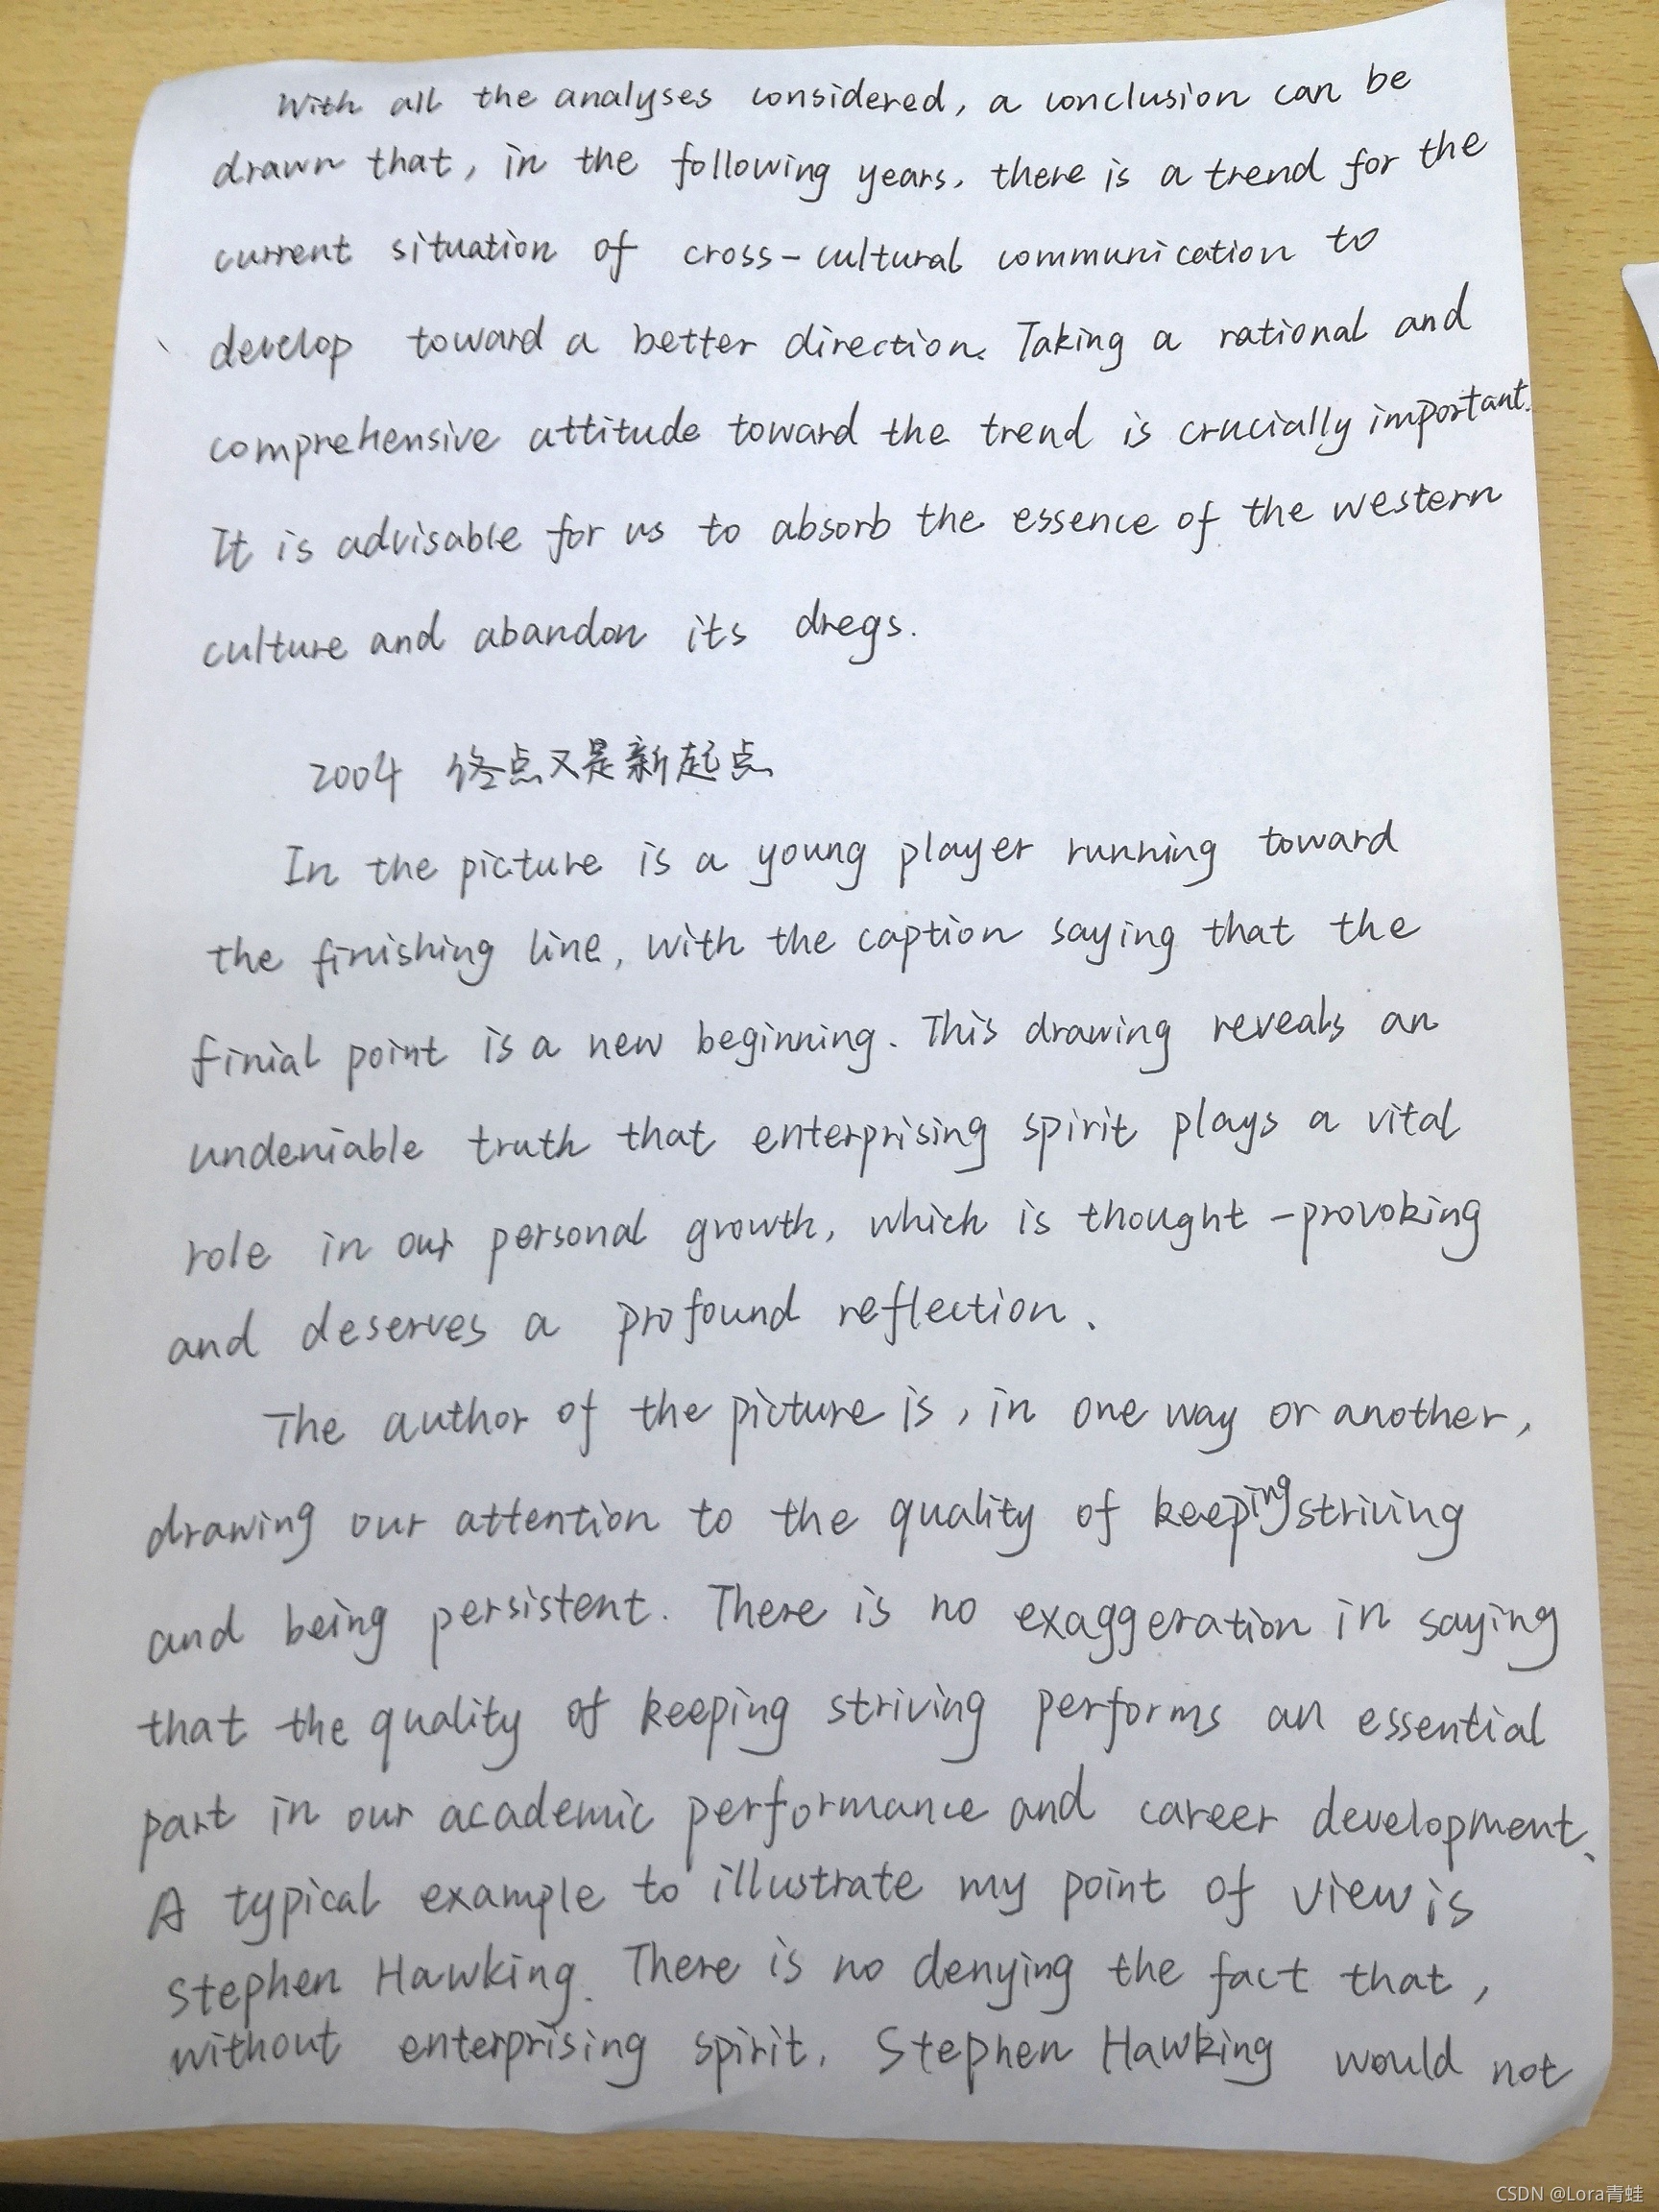 With all the analyses considered, a conclusion can be
drawn that, in the following years, there is a trend for the
current situation of cross-cultural communication to
develop toward a better direction. Taking a rational and
comprehensive attitude toward the trend is crucially important.
It is advisable for us to absorb the essence of the western
culture and abandon its dregs.
2004 终点又是新起点
In the picture is a young player running toward
the finishing line, with the caption saying that the
finial point is a new beginning. This drawing reveals an
undeniable truth that enterprising spirit plays a vital
role in our personal growth, which is thought-provoking
and deserves a profound reflection.
The author of the picture is, in one way or another,
drawing our attention to the quality of keeping striving
and being persistent. There is no exaggeration in saying
that the quality of keeping striving performs an essential
part in our academic performance and career development.
A typical example to illustrate my point of view is
Stephen Hawking. There is no denying the fact that,
without enterprising spirit, Stephen Hawking would not
CSDN @Lora青蛙